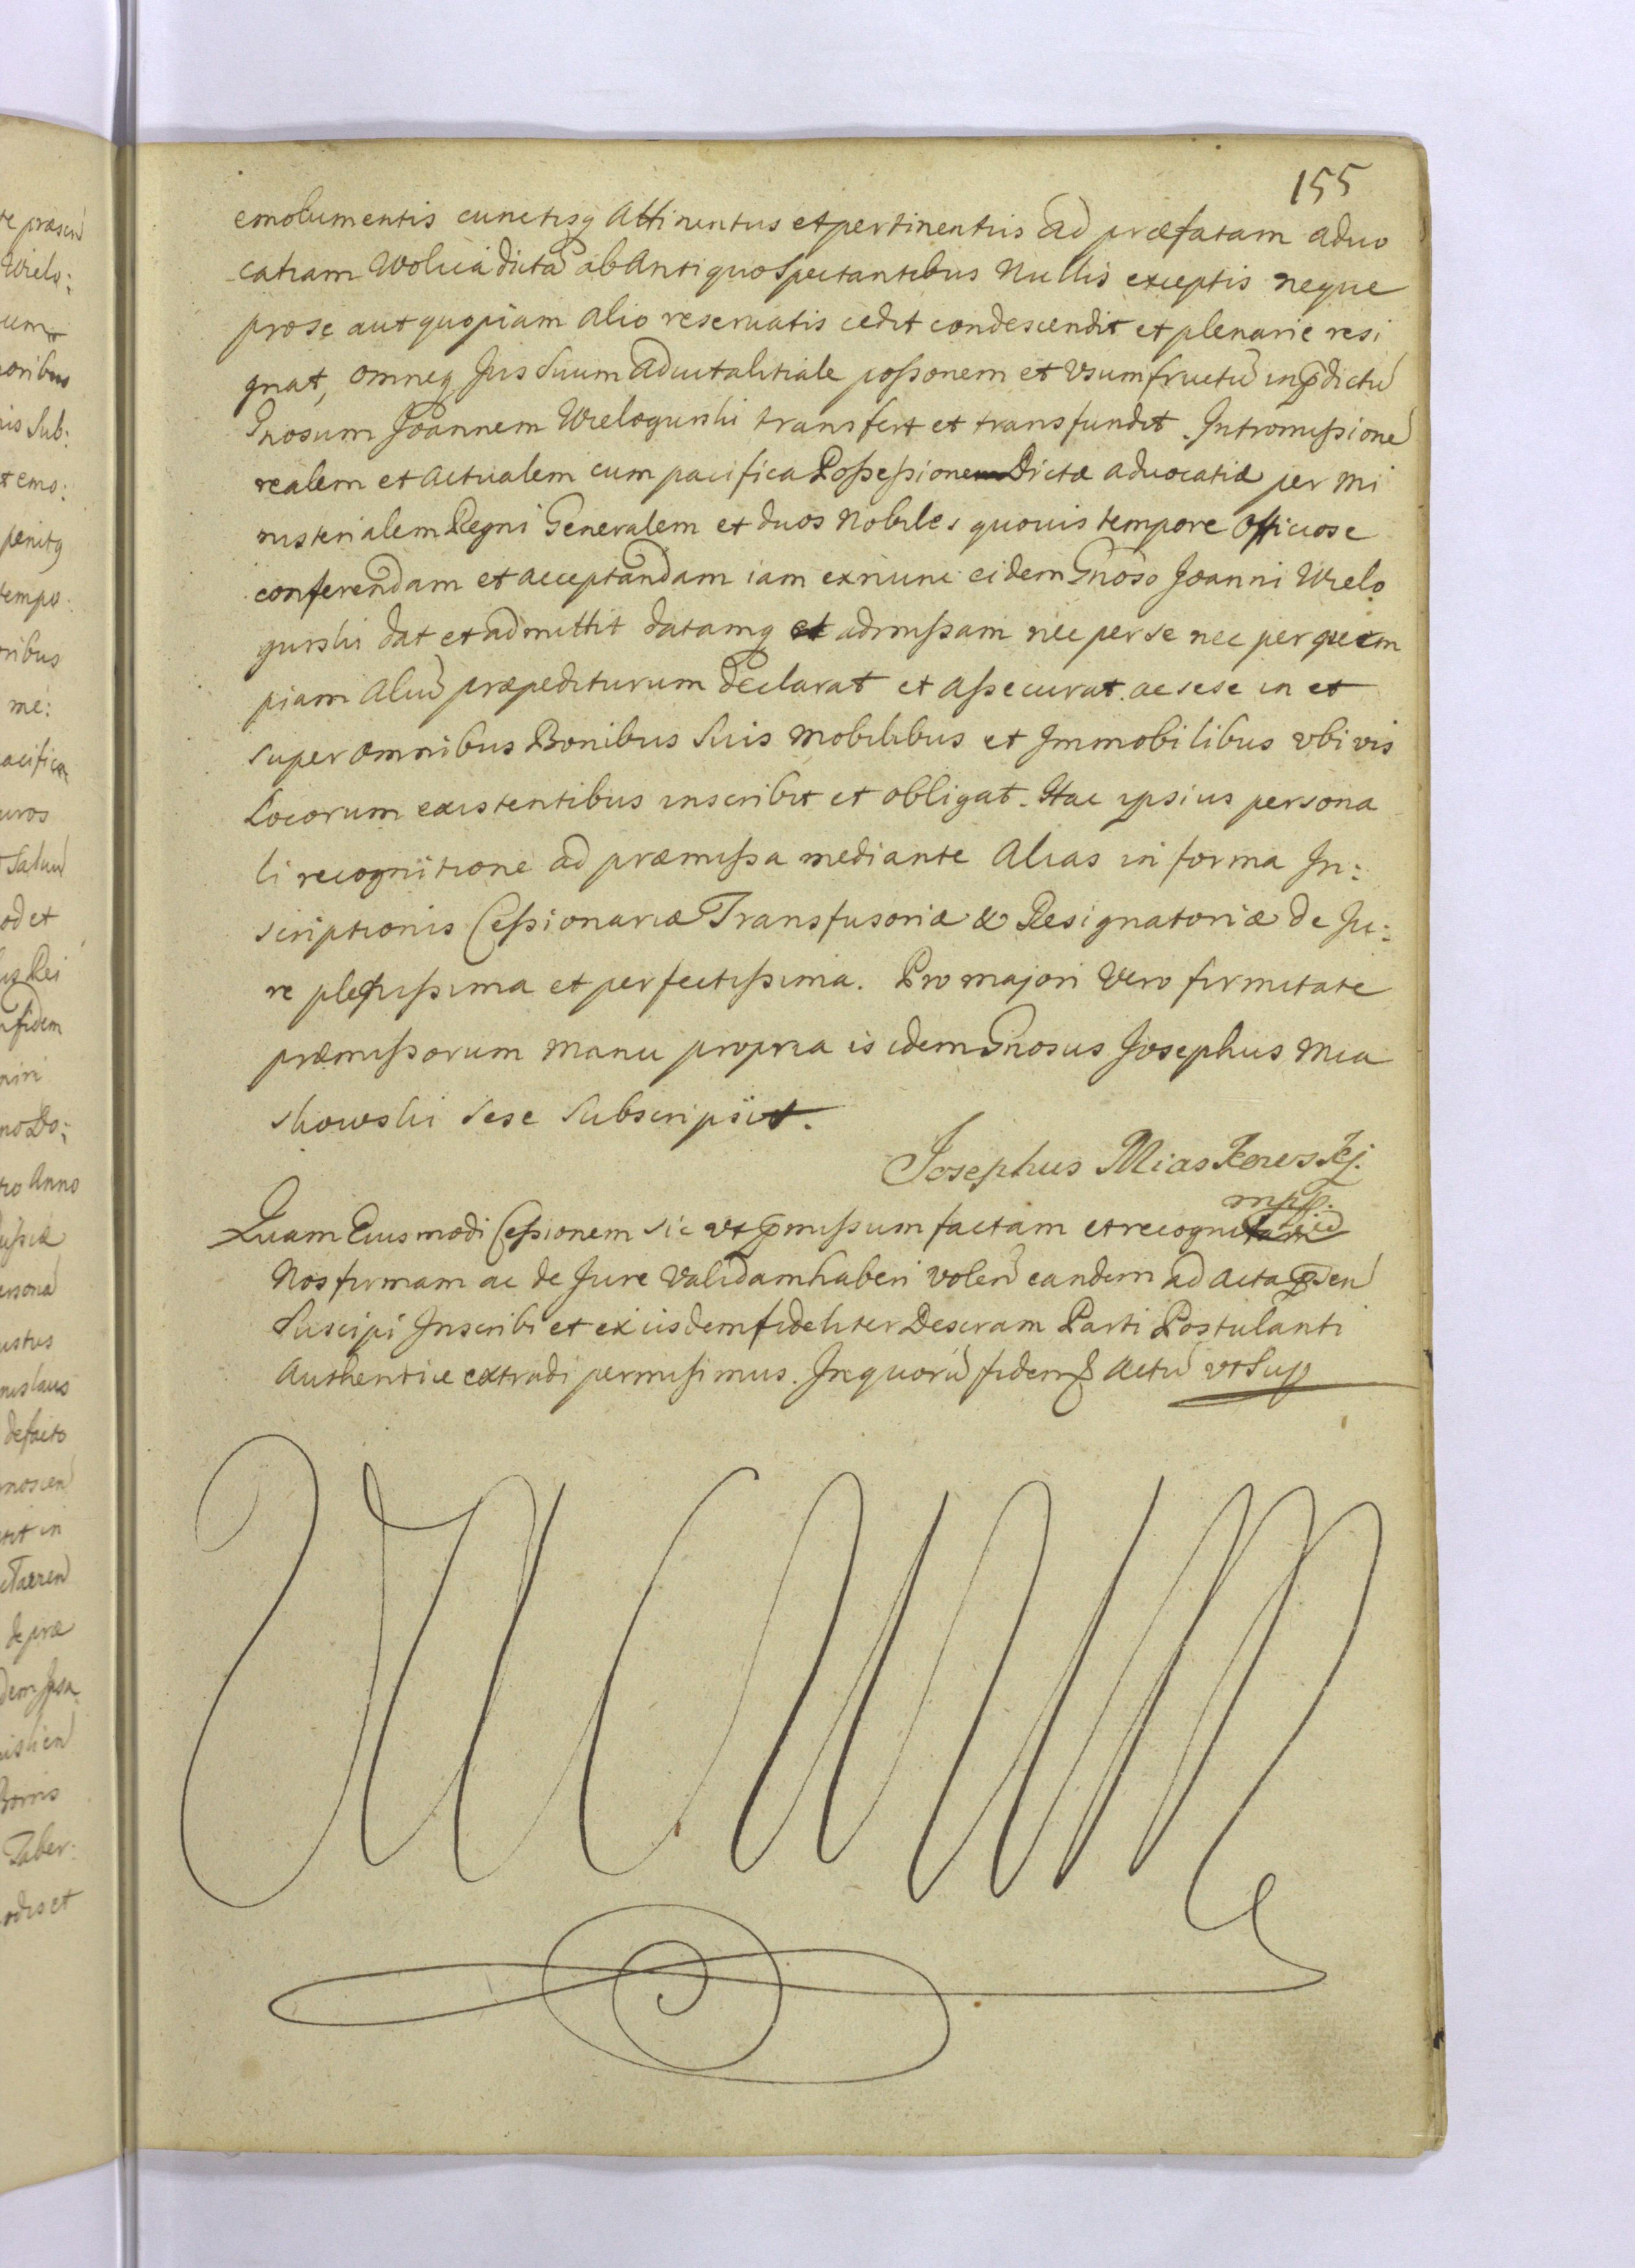 155
emolumentis cunctisq Attinentus et pertinentiis ad præfatam advo
catiam Wolucia dictã ab Antiquo Spectantibus Nullis exceptis neque
prose aut quopiam alio reservatis cedit condescendit et plenarie resi
gnat, omneq Jus Suum advitalitiale poßonem et Vsumfructũ in pdictũ
Gnosum Joannem Wielogurski transfert et transfundit. Intromißionẽ
realem et Actualem cum pacifica Poßeßione Dictæ advocatiæ per Mi
nisterialem Regni Generalem et duos Nobiles quovis tempore Officiose
conferendam et acceptandam iam exnunc eidem Gnoso Joanni Wielo
gurski dat et admittit datamq et admißam nec per se nec per quem
piam Aliũ præpediturum declarat et Aßecurat. ac sese in et
super omnibus Bonibus Suis Mobilibus et Immobilibus vbi vis
Locorum existentibus inscribit et obligat. Hac ipsius persona
li recognitione ad præmißa mediante Alias in forma In:
scriptionis Ceßionariæ Transfusoriæ & Resignatoriæ de Ju:
re plenißima et perfectißima. Pro majori Vero firmitate
præmißorum Manu propria is idem Gnosus Josephus Mia
skowski sese Subscripsit.
Josephus Miaskowskj.
mpp.
Quam Eiusmodi Ceßionem sic vt pmißum factam et recognitam
Nos firmam ac de Jure Validam haberi volen eandem ad Acta pden
Suscipi Inscribi et ex iisdem fideliter Descram Parti Postulanti
Authentice extradi permisimus. In quorũ fidem Actũ vt Sup
te præsen
Wielo:
um
oribus
Sub:
et emo:
penitq
tempo
ribus
me:
acifica
uros
od et
Rei
fidem
no Do:
Anno
ersona
ustus
nislaus
de facto
noscen
tit in
de præ
Bonis
Taber:
odis et